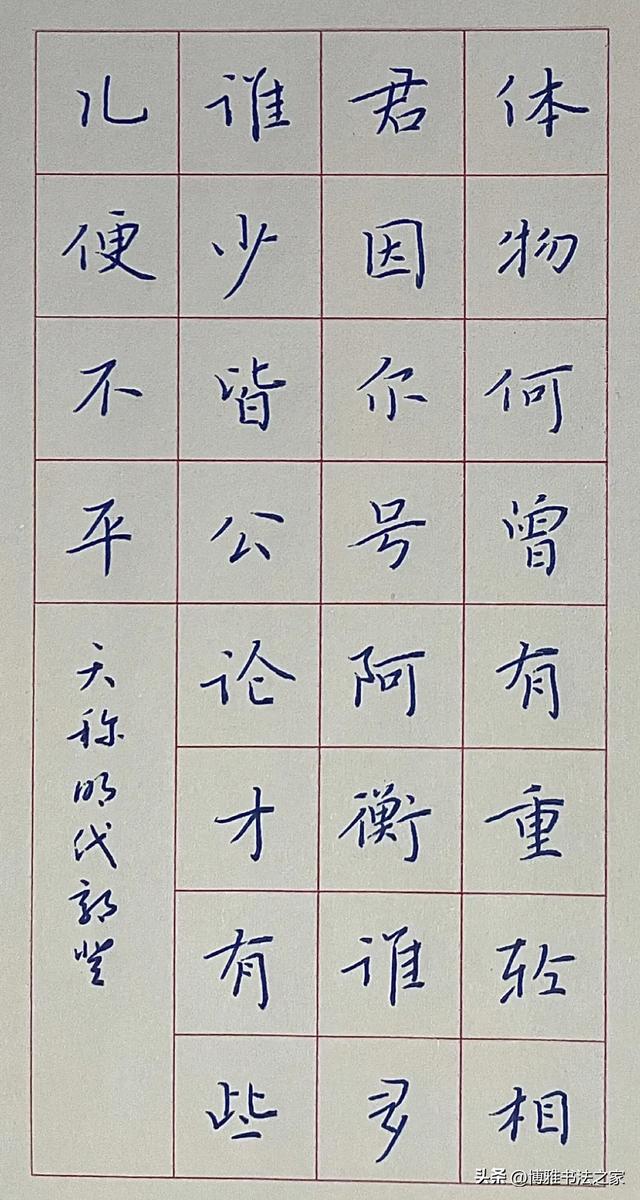 体物何曾有重轻相
君因尔号阿衡谁多
谁少皆公论才有些
儿便不平
天称明代郭登
头条 @博雅书法之家